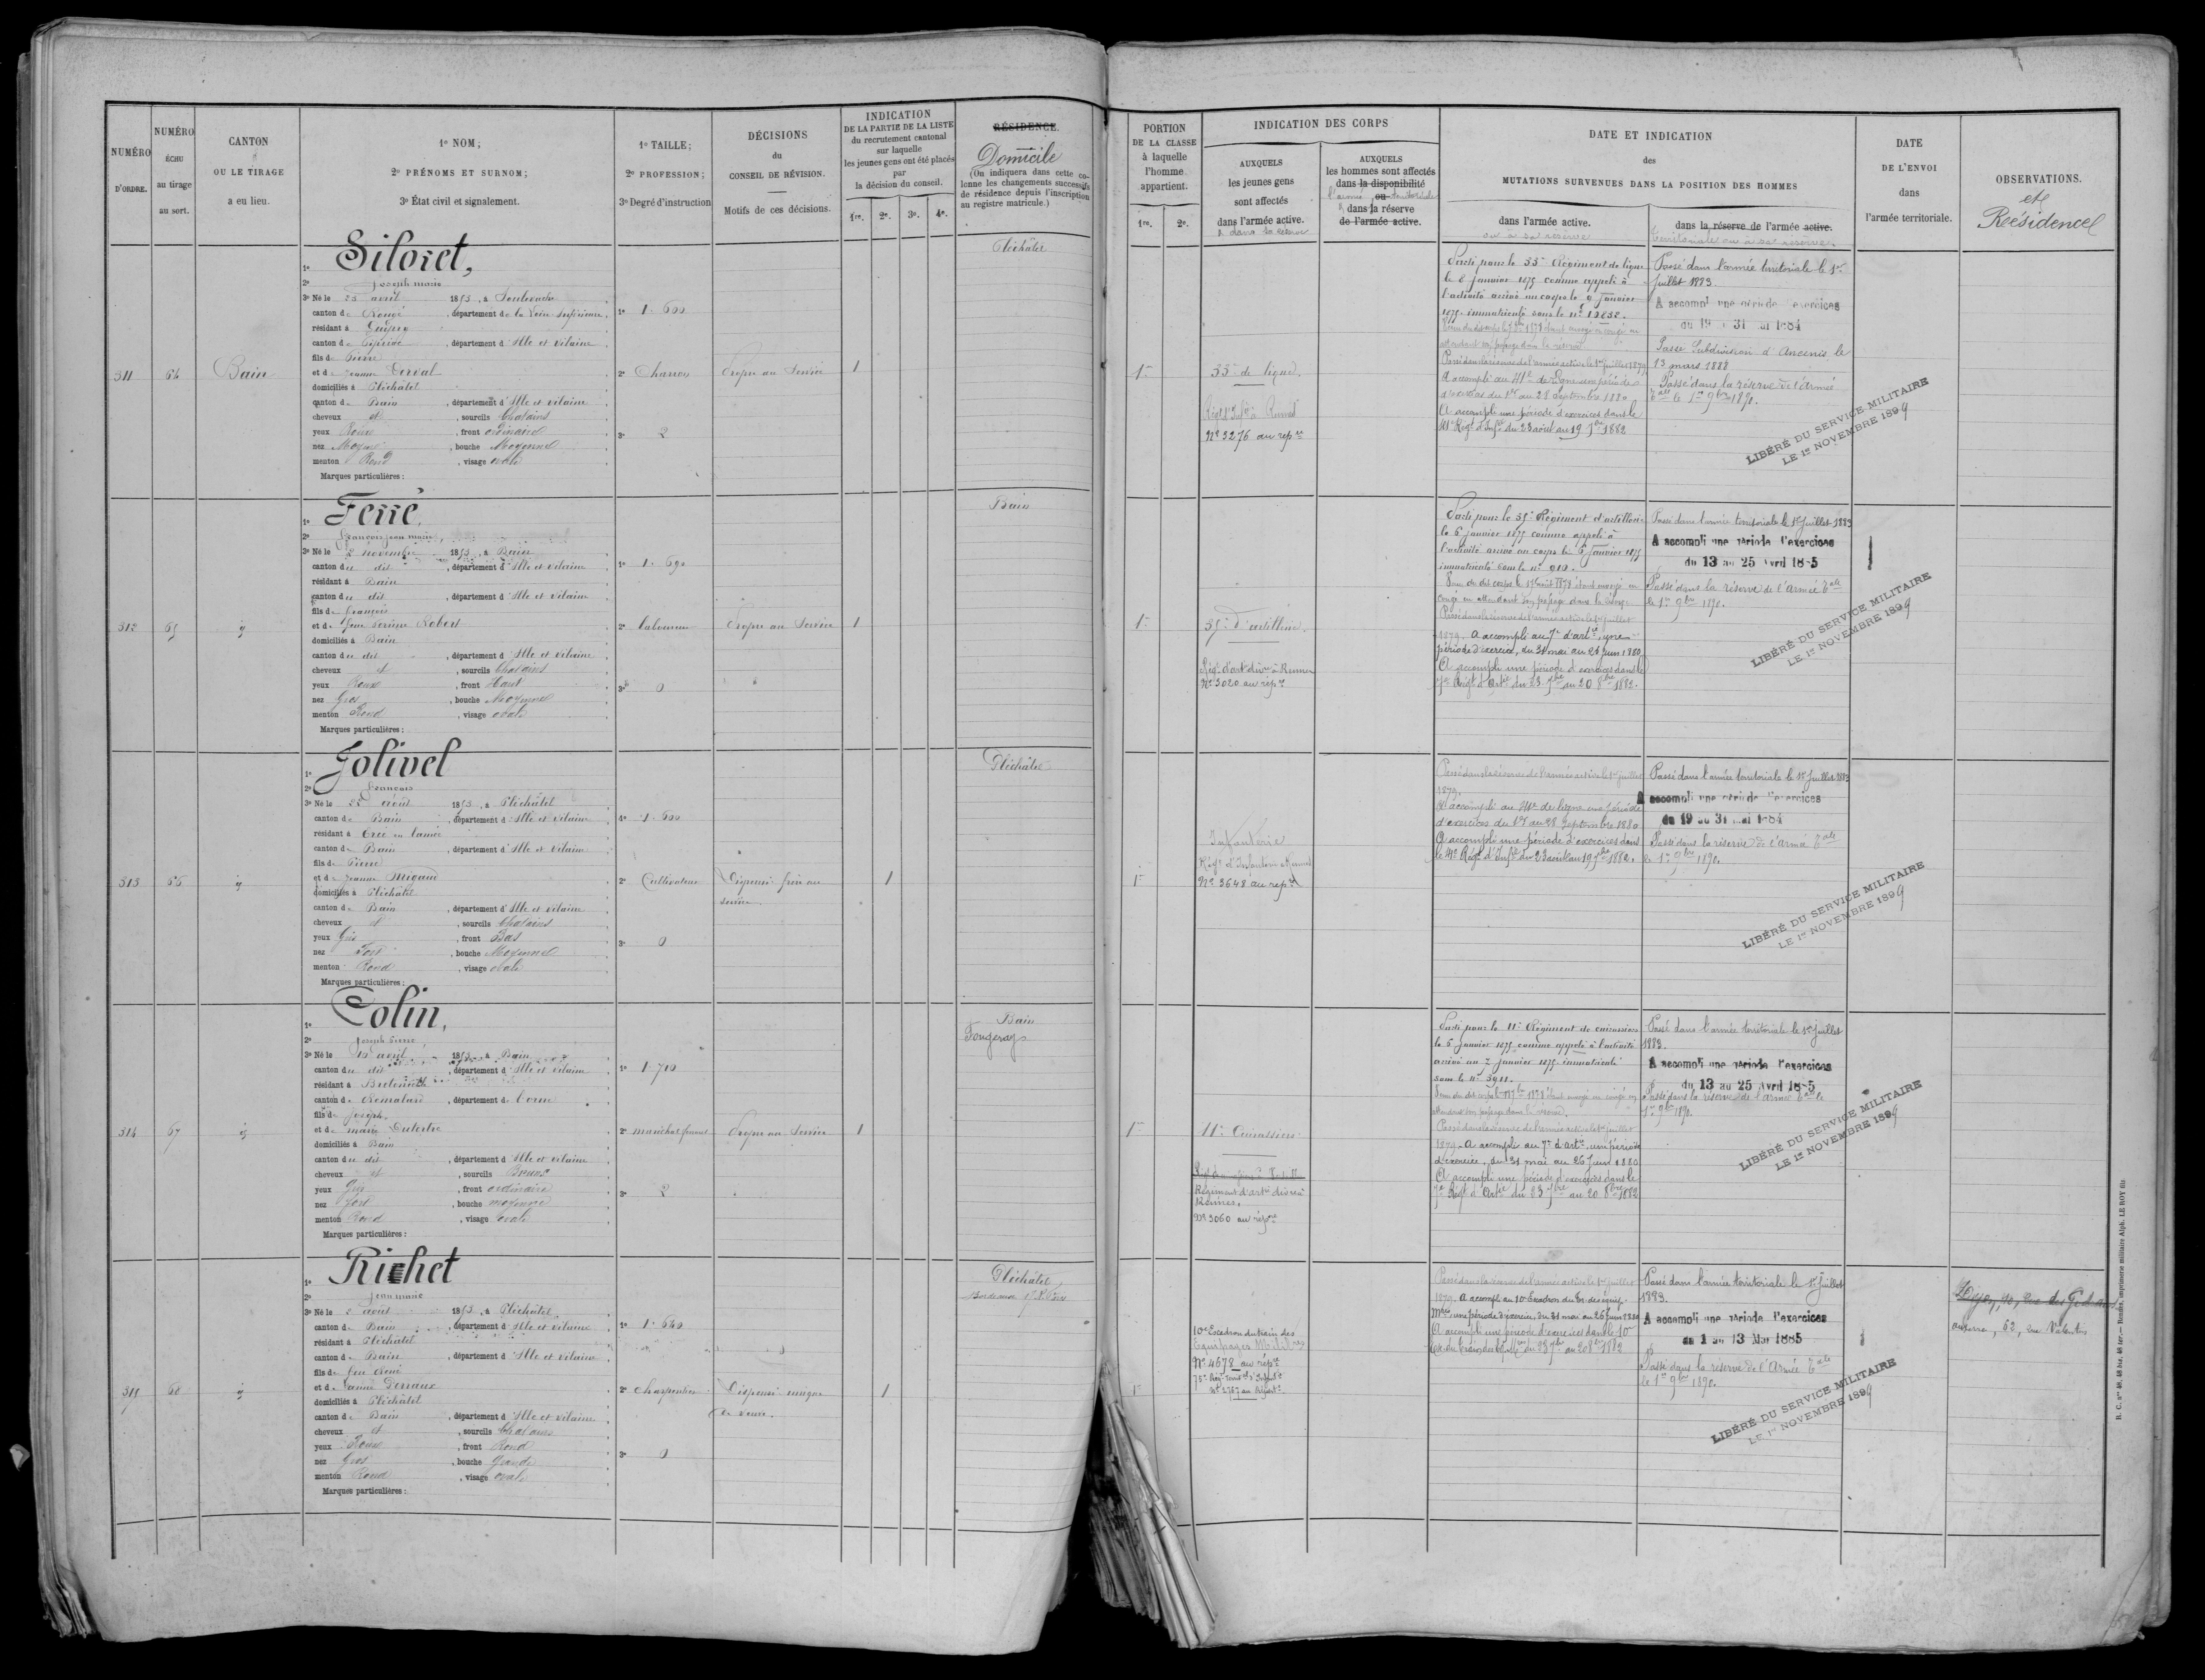 NUMÉRO
D'ORDRE.
NUMÉRO
ÉCHU
au tirage
au sort.
CANTON
OU LE TIRAGE
a eu lieu.
1º NOM;
2º PRÉNOMS ET SURNOM;
3º État civil et signalement.
1º TAILLE;
2º PROFESSION;
3º Degré d'instruction
DÉCISIONS
du
CONSEIL DE RÉVISION.
Motifs de ces décisions.
INDICATION
DE LA PARTIE DE LA LISTE
du recrutement cantonal
sur laquelle
les jeunes gens ont été placés
par
la décision du conseil.
1re. 2e. 3e. 4e.
RÉSIDENCE.
Domicile
(On indiquera dans cette co-
lonne les changements successifs
de résidence depuis l'inscription
au registre matricule.)
PORTION
DE LA CLASSE
à laquelle
l'homme
appartient.
1re. 2e.
INDICATION DES CORPS
AUXQUELS
les jeunes gens
sont affectés
dans l'armée active.
& dans la réserve
AUXQUELS
les hommes sont affectés
dans la disponibilité
ou
dans la réserve
de l'armée active.
DATE ET INDICATION
des
MUTATIONS SURVENUES DANS LA POSITION DES HOMMES
dans l'armée active.
ou à sa réserve
dans la réserve de l'armée active.
territoriale ou à sa réserve.
DATE
DE L'ENVOI
dans
l'armée territoriale.
OBSERVATIONS.
et
Résidence
311
64
Bain
1º Siloret,
2º Joseph marie
3º Né le 23 avril 1853, à Soulvache
canton de Rougé, département de la Loire Inférieure,
résidant à Guipry
canton de Pipriac, département d'Ille et Vilaine
fils de Pierre
et de Jeanne Derval
domiciliés à Pléchâtel
canton de Bain, département d'Ille et Vilaine
cheveux et, sourcils Chatains
yeux Roux, front ordinaire
nez Moyen, bouche Moyenne
menton Rond, visage ovale
Marques particulières :
1º 1. 600
2º
3º 2
Propre au Service
1
Pléchâtel
1re
33e de ligne.
Régt d'Infie à Rennes
Nº 3276 au repre
Parti pour le 33e Régiment de ligne
le 8 Janvier 1875 comme appelé à
l'activité arrivé au corps le 9 Janvier
1875 immatriculé sous le nº 10832.
attendant son passage dans la réserve
Passé dans la réserve de l'armée active le 1er Juillet 1879
A accompli au 41e de Ligne une période
d'exercices du 1er au 28 Septembre 1880
A accompli une période d'exercices dans le
41e Régt d'Infie du 23 août au 19 7bre 1882
Passé dans l'armée territoriale le 1er
Juillet 1883
A accompli une période d'exercices
du 19 au 31 mai 1884
Passé Subdivision d'Ancenis le
13 mars 1888
Passé dans la réserve de l'Armée
Tale le 1er 9bre 1890.
LIBÉRÉ DU SERVICE MILITAIRE
LE 1er NOVEMBRE 1899
312
65
1º Ferré,
2º François Jean marie,
3º Né le 2 novembre 1853, à Bain
canton du dit, département d'Ille et Vilaine
résidant à Bain
canton du dit, département d'Ille et Vilaine
fils de François
et de Robert
domiciliés à Bain
canton du dit, département d'Ille et Vilaine
cheveux et, sourcils Chatains
yeux Roux, front Haut
nez Gros, bouche Moyenne
menton Rond, visage ovale
Marques particulières :
1º 1. 690
2º laboureur
3º 0
Propre au Service
1
Bain
1re
35e d'artillerie.
Régt d'art divre à Rennes
Nº 3020 au répre
Parti pour le 35e Régiment d'artillerie
le 6 Janvier 1875 comme appelé à
l'activité arrivé au corps le 6 Janvier 1875
immatriculé sous le nº 910.
congé en attendant son passage dans la réserve
Passé dans la réserve de l'armée active le 1er Juillet
1879. A accompli au 7e d'artie, une
période d'exercice, du 31 mai au 26 Juin 1880
A accompli une période d'exercices dans le
7e Régt d'Artie du 23 7bre au 20 8bre 1882.
Passé dans l'armée territoriale le 1er Juillet 1883
A accompli une période d'exercices
du 13 au 25 Avril 1885
Passé dans la réserve de l'Armée Tale
le 1er 9bre 1890.
LIBÉRÉ DU SERVICE MILITAIRE
LE 1er NOVEMBRE 1899
313
66
1º Jolivel
2º François
3º Né le 25 Août 1853, à Pléchâtel
canton de Bain, département d'Ille et Vilaine
résidant à Ercé en Lamée
canton de Bain, département d'Ille et Vilaine
fils de Pierre
et de Jeanne Migaud
domiciliés à Pléchâtel
canton de Bain, département d'Ille et Vilaine
cheveux et, sourcils Chatains
yeux Gris, front Bas
nez Fort, bouche Moyenne
menton Rond, visage ovale
Marques particulières :
1º 1. 600
2º Cultivateur
3º 0
Dispensé frère au
service
1
Pléchâtel
1re
Infanterie
Régt d'Infanterie à Rennes
Nº 3648 au repre
Passé dans la réserve de l'armée active le 1er Juillet
1879.
A accompli au 41e de ligne une période
d'exercices du 1er au 28 Septembre 1880
A accompli une période d'exercices dans
le 41e Régt d'Infie du 23 août au 19 7bre 1882.
Passé dans l'armée territoriale le 1er Juillet 1883
A accompli une période d'exercices
du 19 au 31 mai 1884
Passé dans la réserve de l'Armée Tale
le 1er 9bre 1890.
LIBÉRÉ DU SERVICE MILITAIRE
LE 1er NOVEMBRE 1899
314
67
1º Colin,
2º Joseph Pierre
3º Né le avril 1853, à Bain
canton du dit, département d'Ille et Vilaine
résidant à Bretoncelles
canton de Rémalard, département de l'orne
fils de Joseph
et de marie Dutertre
domiciliés à Bain
canton du dit, département d'Ille et Vilaine
cheveux et, sourcils Bruns
yeux Gris, front ordinaire
nez fort, bouche moyenne
menton Rond, visage ovale
Marques particulières :
1º 1. 710
2º maréchal ferrant
3º 2
Propre au Service
1
Bain
Fougeray
1re
11e Cuirassiers
Régiment d'artie divre à
Rennes.
Nº 3060 au répre
Parti pour le 11e Régiment de cuirassiers
le 6 Janvier 1875 comme appelé à l'activité
arrivé au 7 Janvier 1875 immatriculé
sous le nº 3911.
attendant son passage dans la réserve.
Passé dans la réserve de l'armée active le 1er Juillet
1879. A accompli au 7e d'artie, une période
d'exercice, du 31 mai au 26 Juin 1880
A accompli une période d'exercices dans le
7e Régt d'Artie du 23 7bre au 20 8bre 1882
Passé dans l'armée territoriale le 1er Juillet
1883.
A accompli une période d'exercices
du 13 au 25 Avril 1885
Passé dans la réserve de l'armée Tale le
1er 9bre 1890.
LIBÉRÉ DU SERVICE MILITAIRE
LE 1er NOVEMBRE 1899
315
68
1º Richet
2º Jean marie
3º Né le 2 août 1853, à Pléchâtel
canton de Bain, département d'Ille et Vilaine
résidant à Pléchâtel
canton de Bain, département d'Ille et Vilaine
fils de feu René
et de Jeanne Derraux
domiciliés à Pléchâtel
canton de Bain, département d'Ille et Vilaine
cheveux et, sourcils Chatains
yeux Roux, front Rond
nez Gros, bouche Grande
menton Rond, visage ovale
Marques particulières :
1º 1. 640
2º charpentier
3º 0
Dispensé unique
de veuve.
1
Pléchâtel
1re
10e Escadron du train des
Equipages Militres
Nº 4678 au répre
Passé dans la réserve de l'armée active le 1er Juillet
1879. A accompli au 10e Escadron du tr. des équip.
Mres une période d'exercice, du 31 mai au 26 Juin 1880
A accompli une période d'exercices dans le 10e
Passé dans l'armée territoriale le 1er Juillet
1883.
A accompli une période d'exercices
du 1 au 13 Mai 1885
Passé dans la réserve de l'Armée Tale
le 1er 9bre 1890.
LIBÉRÉ DU SERVICE MILITAIRE
LE 1er NOVEMBRE 1899
62, rue
R. C. nos 48, 48 bis, 48 ter. — Rennes, imprimerie militaire Alph. LE ROY fils.